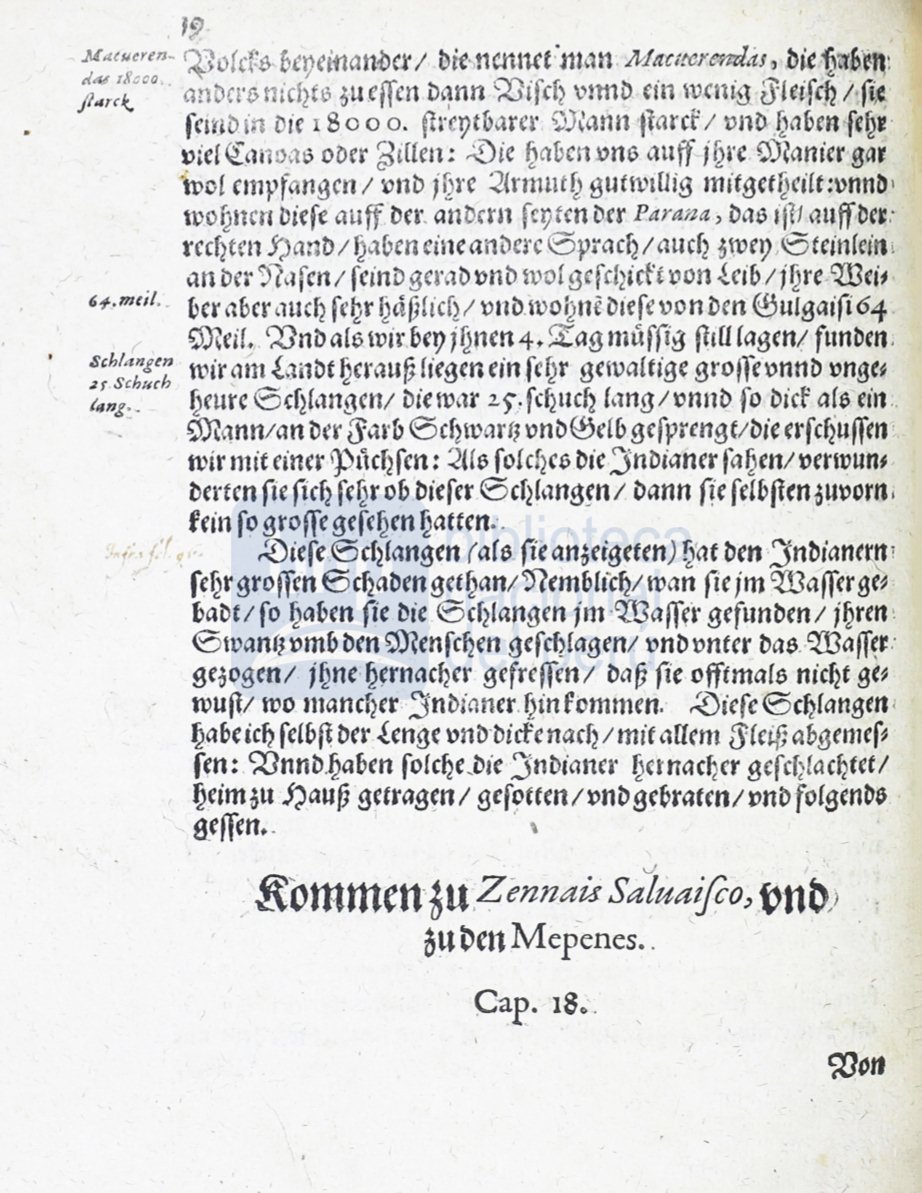 19
Macueren-
das 18000.
starck
Volcks beyeinander/ die nennet man Macuerendas, die haben
anders nichts zu essen dann Visch vnnd ein wenig Fleisch / sie
seind in die 18000. streytbarer Mann starck/ vnd haben sehr
viel Canoas oder Zillen: Die haben vns auff jhre Manier gar
wol empfangen / vnd jhre Armuth gutwillig mitgetheilt: vnnd
wohnen diese auff der andern seyten der Parana, das ist/ auff der
rechten Hand / haben eine andere Sprach / auch zwey Steinlein
an der Nasen / seind gerad vnd wol geschickt von Leib / jhre Wei-
64. meil.
ber aber auch sehr häßlich / vnd wohnē diese von den Gulgaisi 64
Meil. Vnd als wir bey jhnen 4. Tag müssig still lagen/ funden
Schlangen
25 Schuch
lang.
wir am Landt herauß liegen ein sehr gewaltige grosse vnnd vnge-
heure Schlangen/ die war 25. schuch lang / vnnd so dick als ein
Mann/ an der Farb Schwartz vnd Gelb gesprengt/ die erschussen
wir mit einer Püchsen: Als solches die Indianer sahen/ verwun-
derten sie sich sehr ob dieser Schlangen / dann sie selbsten zuvorn
kein so grosse gesehen hatten.
Diese Schlangen (als sie anzeigeten) hat den Indianern
sehr grossen Schaden gethan/ Nemblich/ wan sie jm Wasser ge-
badt / so haben sie die Schlangen jm Wasser gefunden / jhren
Swantz vmb den Menschen geschlagen / vnd vnter das Wasser
gezogen / jhne hernacher gefressen / daß sie offtmals nicht ge-
wust/ wo mancher Indianer hinkommen. Diese Schlangen
habe ich selbst der Lenge vnd dicke nach / mit allem Fleiß abgemes-
sen: Vnnd haben solche die Indianer hernacher geschlachtet/
heim zu Hauß getragen / gesotten / vnd gebraten / vnd folgends
gessen.
Kommen zu Zennais Saluaisco, vnd
zu den Mepenes.
Cap. 18.
Von
biblioteca
nacional